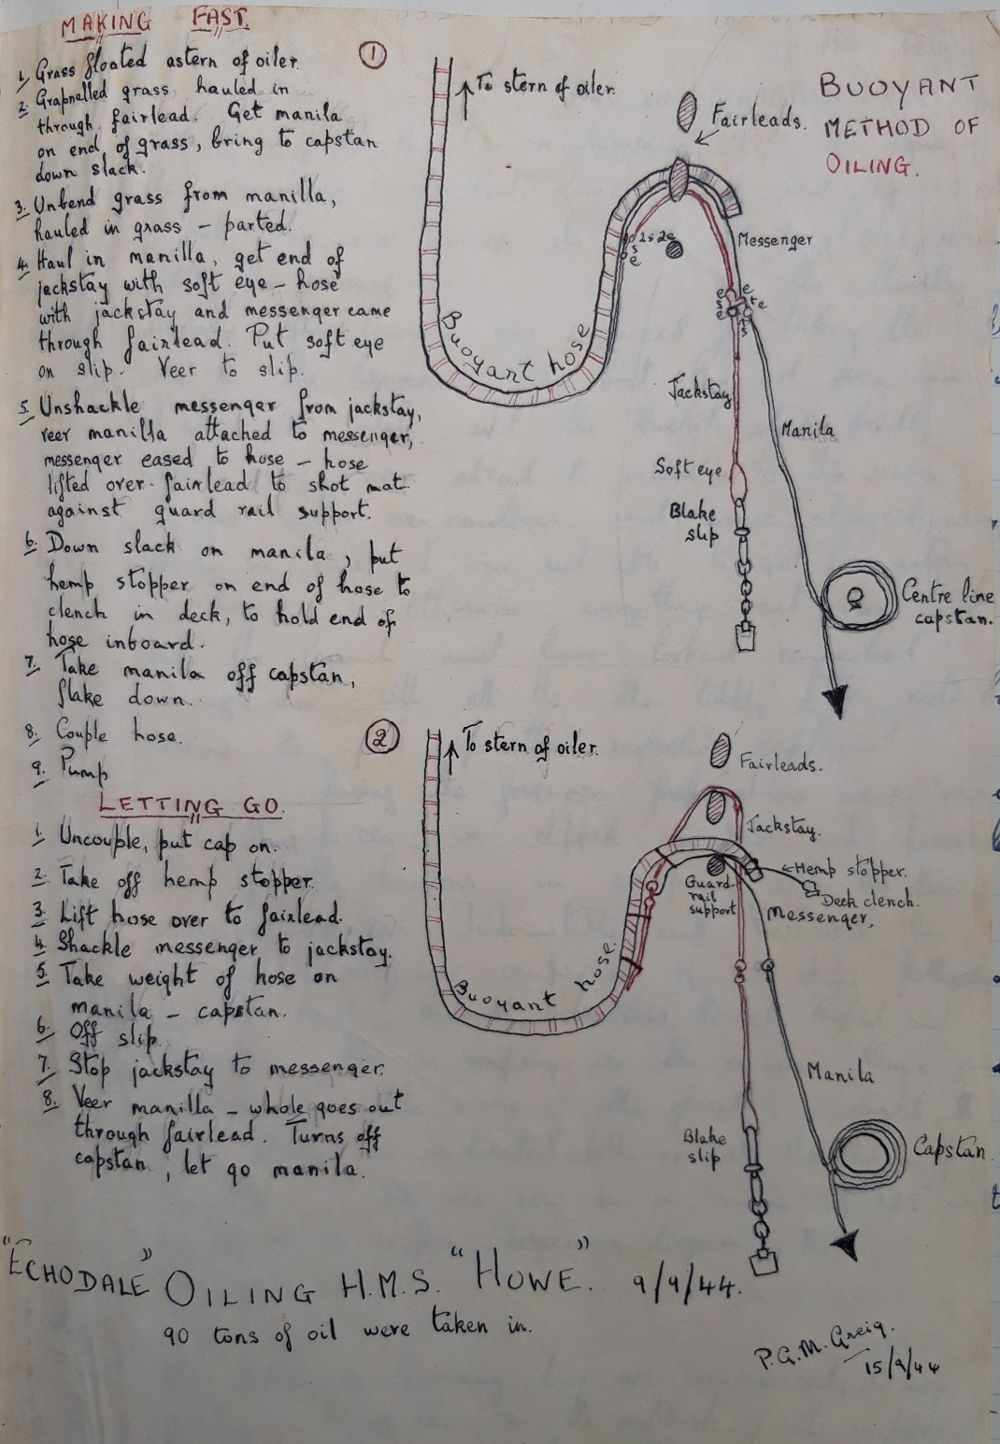 MAKING FAST.
1, Grass floated astern of oiler.
2. Grapnelled grass hauled in
through fairlead. Get manila
on end of grass, bring to capstan
down slack.
3. Unbend grass from manilla,
hauled in grass – parted.
4. Haul in manilla, get end of
jackstay with soft eye – hose
with jackstay and messenger came
through fairlead. Put soft eye
on slip. Veer to slip.
5. Unshackle messenger from jackstay,
veer manilla attached to messenger,
messenger eased to hose – hose
lifted over fairlead to shot mat
against guard rail support.
6. Down slack on manila, put
hemp stopper on end of hose to
clench in deck, to hold end of
hose inboard.
7. Take manila off capstan,
flake down.
8. Couple hose.
9. Pump
LETTING GO.
1. Uncouple, put cap on.
2. Take off hemp stopper.
3. Lift hose over to fairlead.
4. Shackle messenger to jackstay.
5. Take weight of hose on
manila – capstan.
6. Off slip.
7. Stop jackstay to messenger.
8. Veer manilla – whole goes out
through fairlead. Turns off
capstan, let go manila.
1
To stern of oiler.
Fairleads.
BUOYANT
METHOD OF
OILING.
Messenger
Buoyant hose
Jackstay
Manila
Soft eye
Blake
slip
Centre line
capstan.
2
To stern of oiler.
Fairleads.
Jackstay.
Hemp stopper.
Guard
rail
support
Deck clench.
Messenger,
Buoyant hose
Manila
Blake
slip
Capstan.
"ECHODALE" OILING H.M.S. "HOWE". 9/9/44.
90 tons of oil were taken in.
P.G.M. Greig.
15/9/44